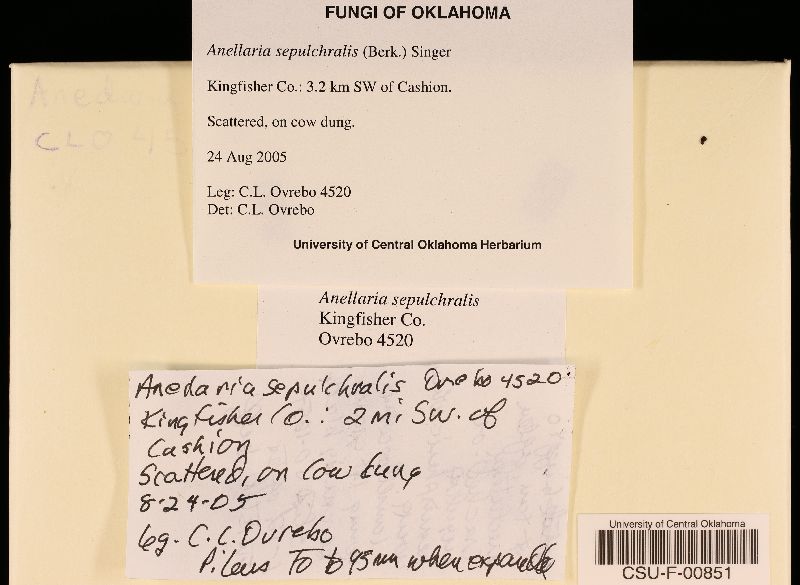 FUNGI OF OKLAHOMA
Anellaria sepulchralis (Berk.) Singer
Kingfisher Co.: 3.2 km SW of Cashion.
Scattered, on cow dung.
24 Aug 2005
Leg: C.L. Ovrebo 4520
Det: C.L. Ovrebo
University of Central Oklahoma Herbarium
Anellaria sepulchralis
Kingfisher Co.
Ovrebo 4520
Anellaria sepulchralis Ovrebo 4520
Kingfisher Co.: 2 mi SW. of
Cashion
Scattered, on cow dung
8-24-05
leg. C.L. Ovrebo
Pileus To to 45 mm when expanded
University of Central Oklahoma
CSU-F-00851